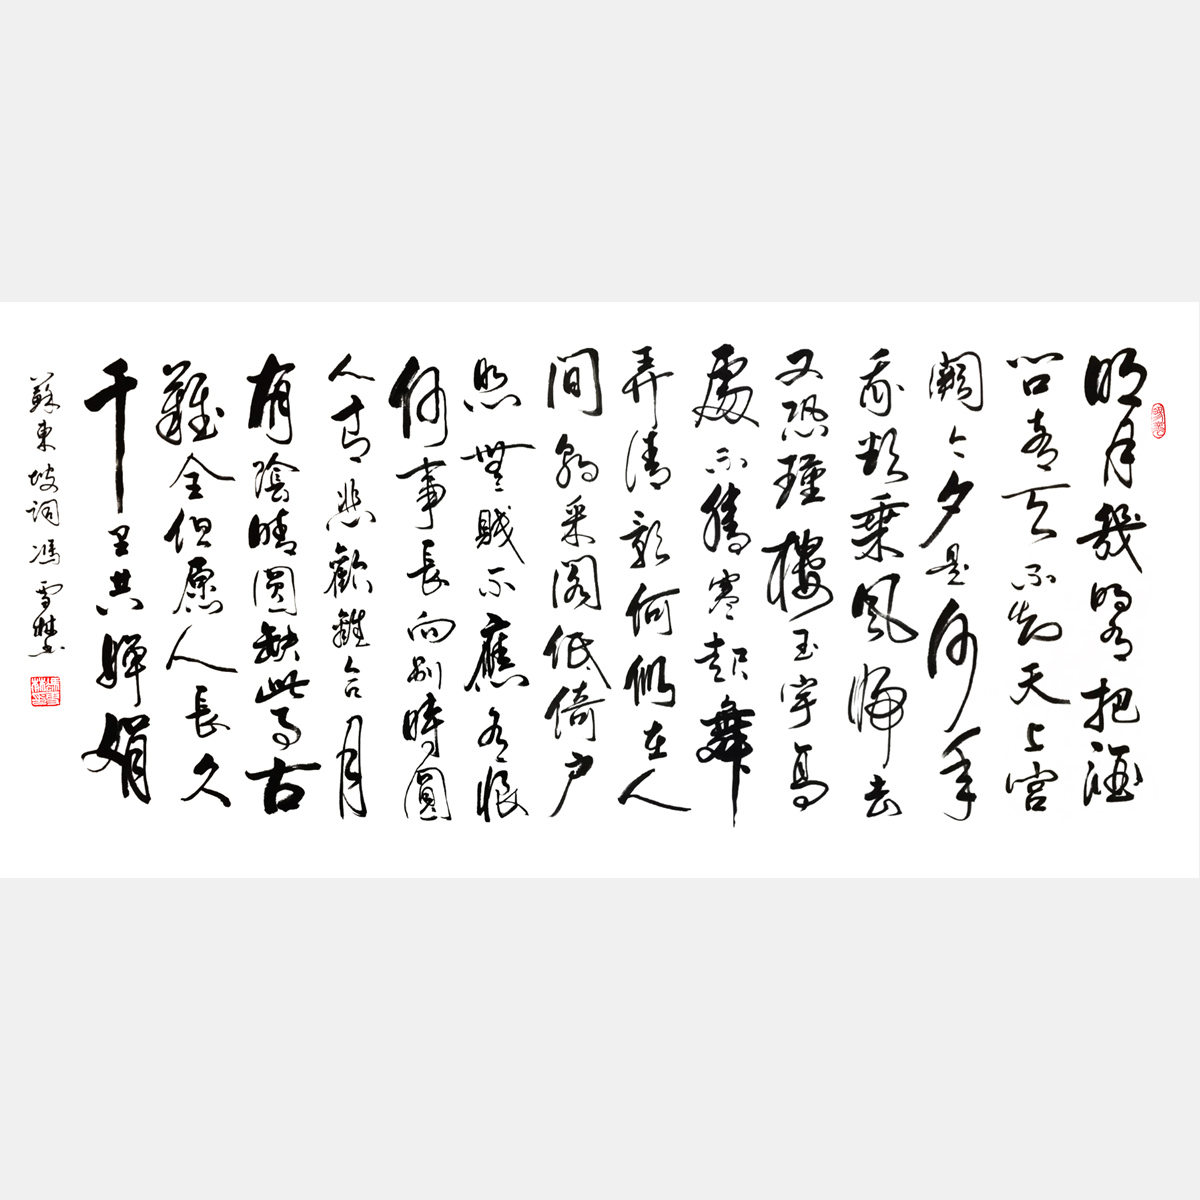 明月幾時有把酒
問青天不知天上宮
闕今夕是何年
我欲乘風歸去
又恐瓊樓玉宇高
處不勝寒起舞
弄清影何似在人
間轉朱閣低倚户
照無眠不應有恨
何事長向别時圓
人有悲歡離合月
有陰晴圓缺此事古
難全但愿人長久
千里共嬋娟
蘇東坡詞 馮雪林书